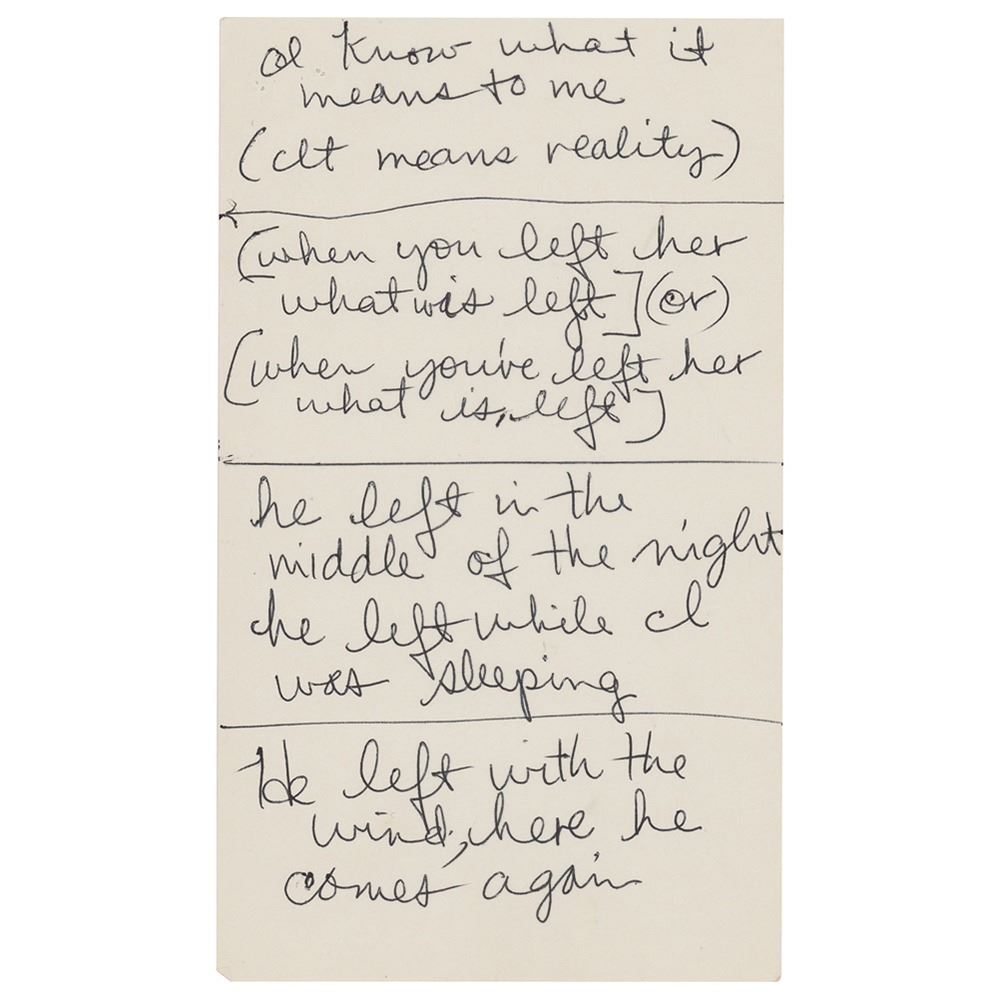 I know what it
means to me
(It means reality)
[when you left her
what was left] (or)
[when you've left her
what is, left]
he left in the
middle of the night
he left while I
was sleeping
He left with the
wind, here he
comes again